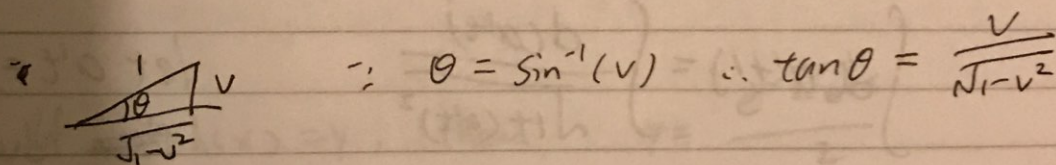 1 V θ √1-v²
∵ θ = sin⁻¹(v) ∴ tanθ = V/√1-v²